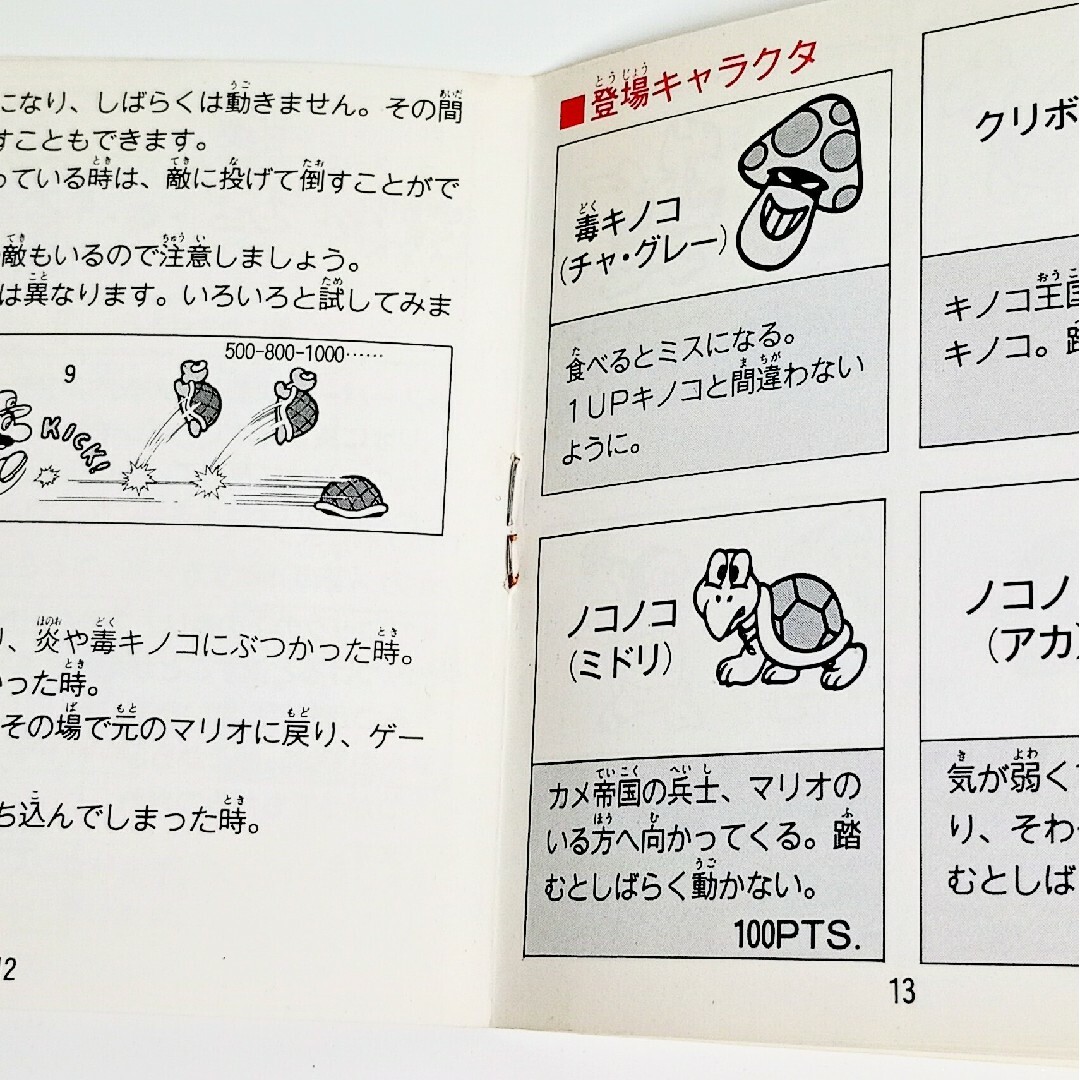 になり、しばらくは動きません。その間
すこともできます。
っている時は、敵に投げて倒すことがで
敵もいるので注意しましょう。
は異なります。いろいろと試してみま
9
500-800-1000……
KICK!
り、炎や毒キノコにぶつかった時。
かった時。
その場で元のマリオに戻り、ゲー
ち込んでしまった時。
12
■登場キャラクタ
毒キノコ
(チャ・グレー)
食べるとミスになる。
1UPキノコと間違わない
ように。
クリボ
キノコ王国
キノコ。踏
ノコノコ
(ミドリ)
カメ帝国の兵士、マリオの
いる方へ向かってくる。踏
むとしばらく動かない。
100PTS.
ノコノ
(アカ)
気が弱く
り、そわ
むとしば
13